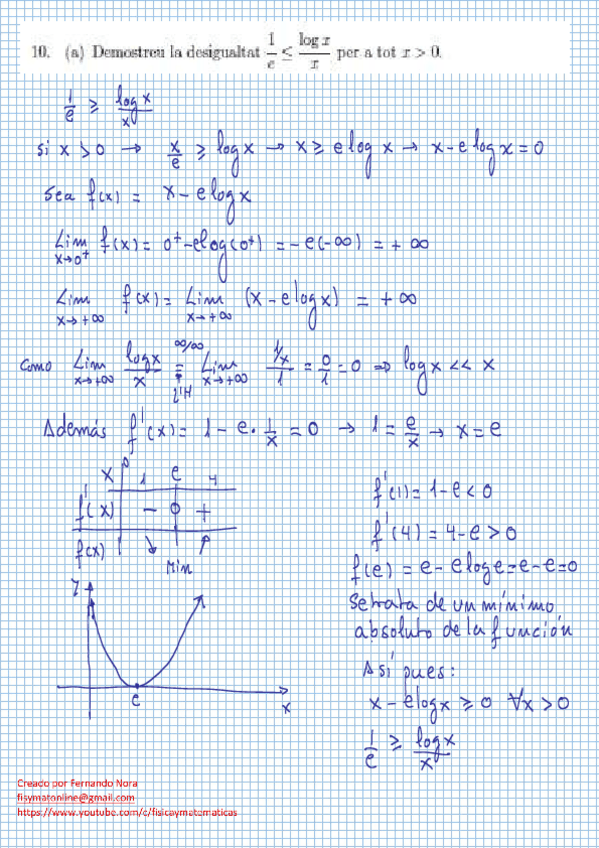 10. (a) Demostreu la desigualtat 1/e ≤ log x/x per a tot x > 0.
1/e ≥ logx/x
Si x > 0 → x/e ≥ logx → x ≥ e log x → x - e log x = 0
Sea f(x) = x - e log x
Lim x→0⁺ f(x) = 0⁺ - e log(0⁺) = -e(-∞) = +∞
Lim x→+∞ f(x) = Lim x→+∞ (x - e log x) = +∞
Como Lim x→+∞ logx/x = ∞/∞ L'H Lim x→+∞ 1/x/1 = 0/1 = 0 ⇒ log x << x
Además f'(x) = 1 - e · 1/x = 0 → 1 = e/x → x = e
x 0 1 e 4
f'(x) - 0 +
f(x) ↘ ↗
Min
y
e
x
f'(1) = 1 - e < 0
f'(4) = 4 - e > 0
f(e) = e - e log e = e - e = 0
Se trata de un mínimo
absoluto de la función
Así pues:
x - e log x ≥ 0 ∀x > 0
1/e ≥ logx/x
Creado por Fernando Nora
fisymatonline@gmail.com
https://www.youtube.com/c/fisicaymatematicas